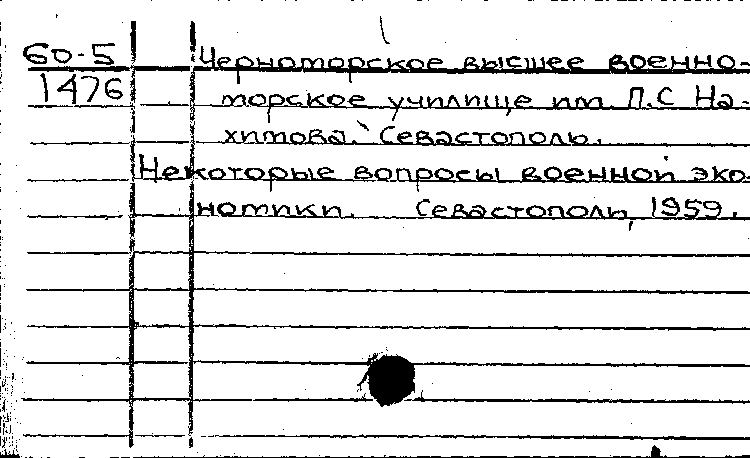 60-5 Черноморское высшее военно-
1476 морское училище им. П.С На-
химова. Севастополь.
Некоторые вопросы военной эко-
номики. Севастополь, 1959.